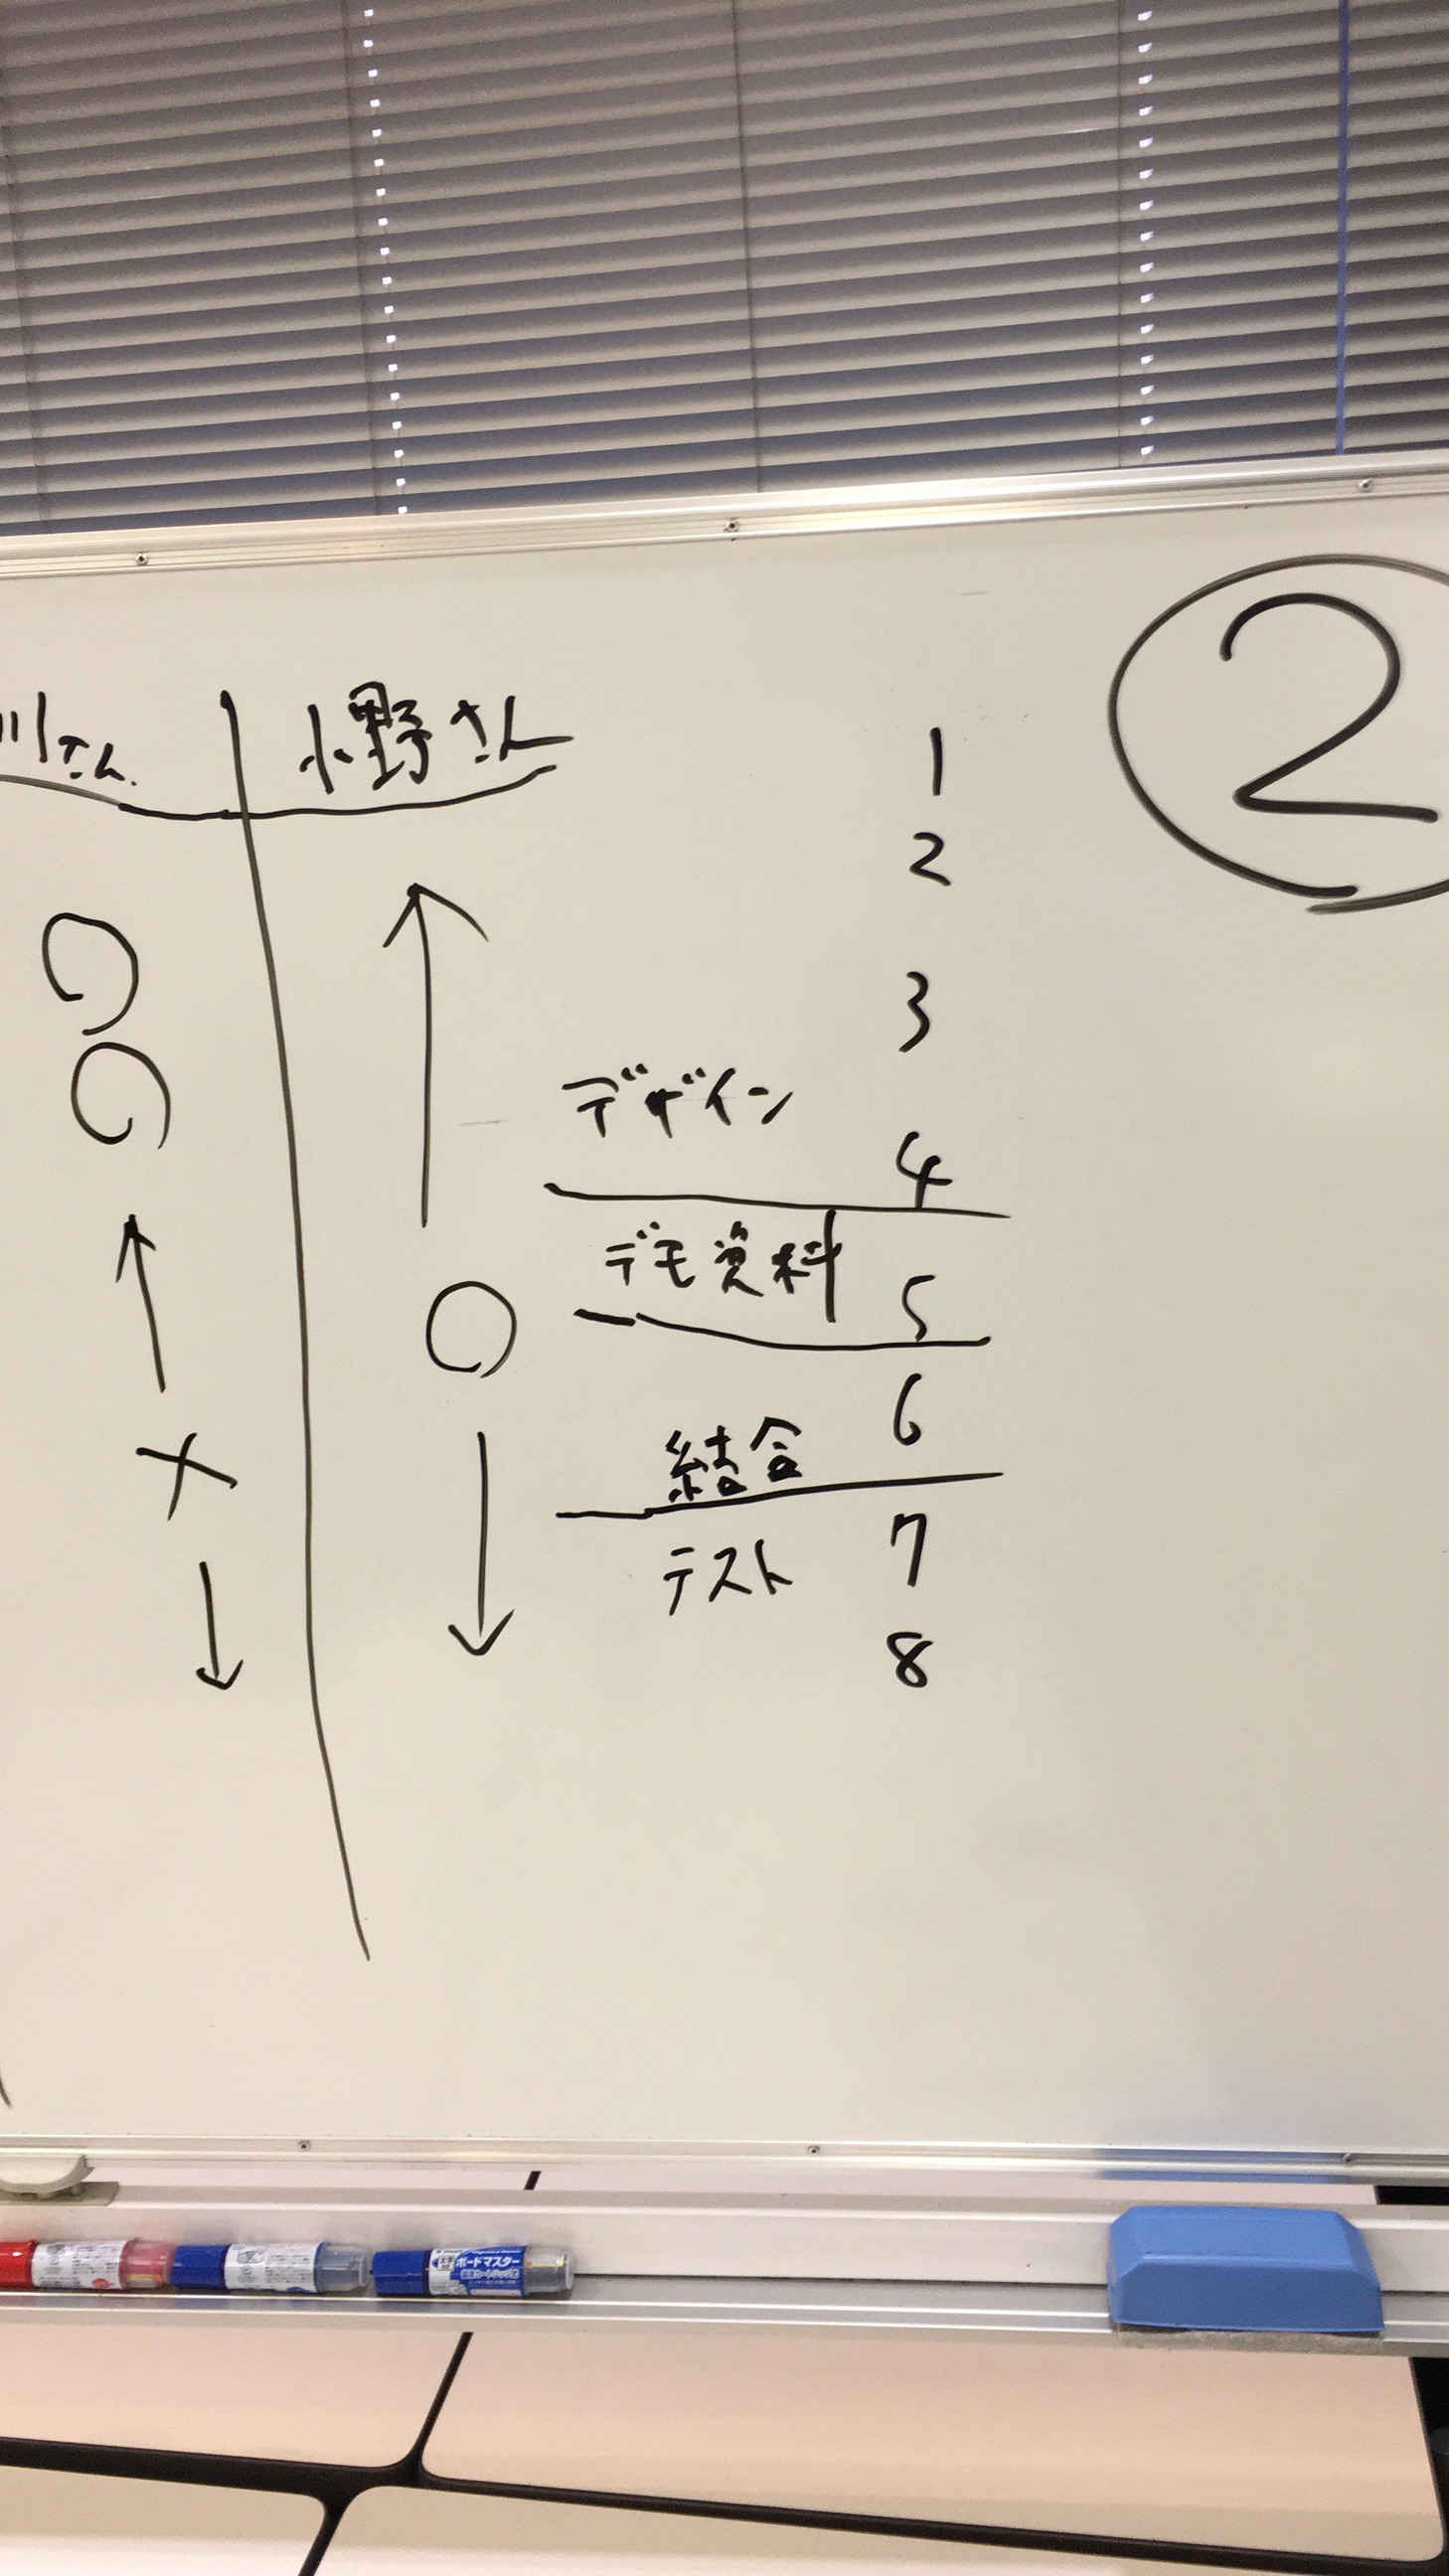 ②
川さん
小野さん
1
2
3
デザイン
4
デモ資料
5
6
結合
7
テスト
8
ボードマスター